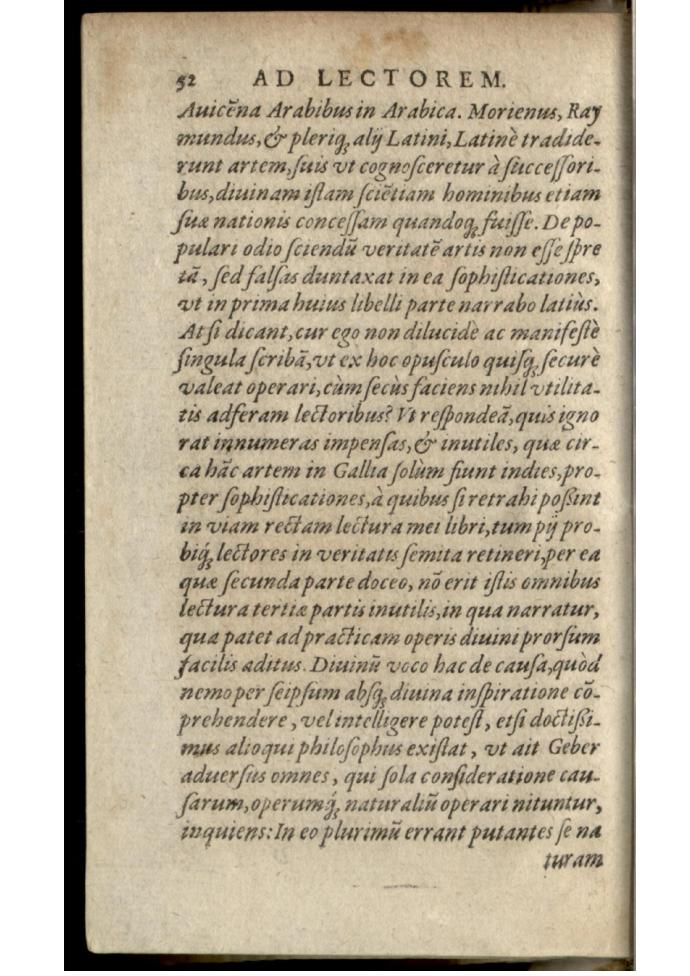 52 AD LECTOREM.
Auicēna Arabibus in Arabica. Morienus, Ray
mundus, & pleriq; alij Latini, Latinè tradide-
runt artem, suis vt cognosceretur à successori-
bus, diuinam istam sciētiam hominibus etiam
suæ nationis concessam quandoq; fuisse. De po-
pulari odio sciendū veritatē artis non esse spre
tā, sed falsas duntaxat in ea sophisticationes,
vt in prima huius libelli parte narrabo latiùs.
At si dicant, cur ego non dilucidè ac manifestè
singula scribā, vt ex hoc opusculo quisq; securè
valeat operari, cùm secùs faciens nihil vtilita-
tis adferam lectoribus? Vt respondeā, quis igno
rat innumeras impensas, & inutiles, quæ cir-
ca hāc artem in Gallia solùm fiunt indies, pro-
pter sophisticationes, à quibus si retrahi poßint
in viam rectam lectura mei libri, tum pij pro-
biq́; lectores in veritatis semita retineri, per ea
quæ secunda parte doceo, nō erit istis omnibus
lectura tertiæ partis inutilis, in qua narratur,
qua patet ad practicam operis diuini prorsum
facilis aditus. Diuinū voco hac de causa, quòd
nemo per seipsum absq; diuina inspiratione cō-
prehendere, vel intelligere potest, etsi doctißi-
mus alioqui philosophus existat, vt ait Geber
aduersus omnes, qui sola consideratione cau-
sarum, operumq́; naturaliū operari nituntur,
inquiens: In eo plurimū errant putantes se na
turam